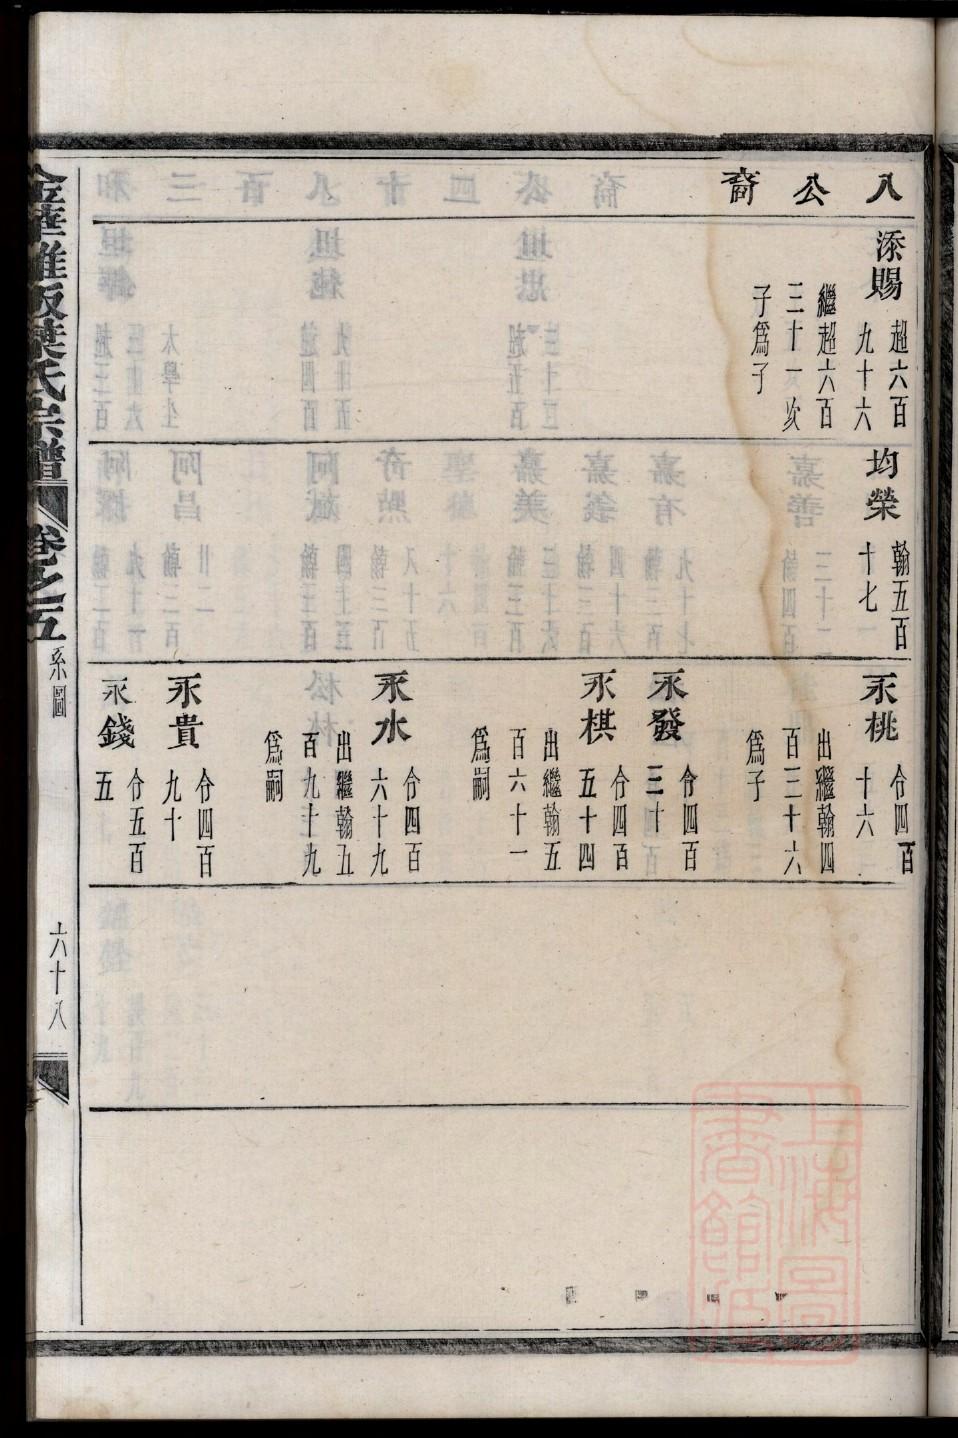 八公公裔
添賜
超六百
九十六
繼超六百
三十一次
子爲子
均榮
翰五百
十七
永桃
令四百
十六
出繼翰四
百三十六
爲子
永發
令四百
三十
永棋
令四百
五十四
出繼翰五
百六十一
爲嗣
永水
令四百
六十九
出繼翰五
百九十九
爲嗣
永貴
令四百
九十
永錢
令五百
五
葉氏宗譜
卷之五
系圖
六十八
上海圖
書館藏